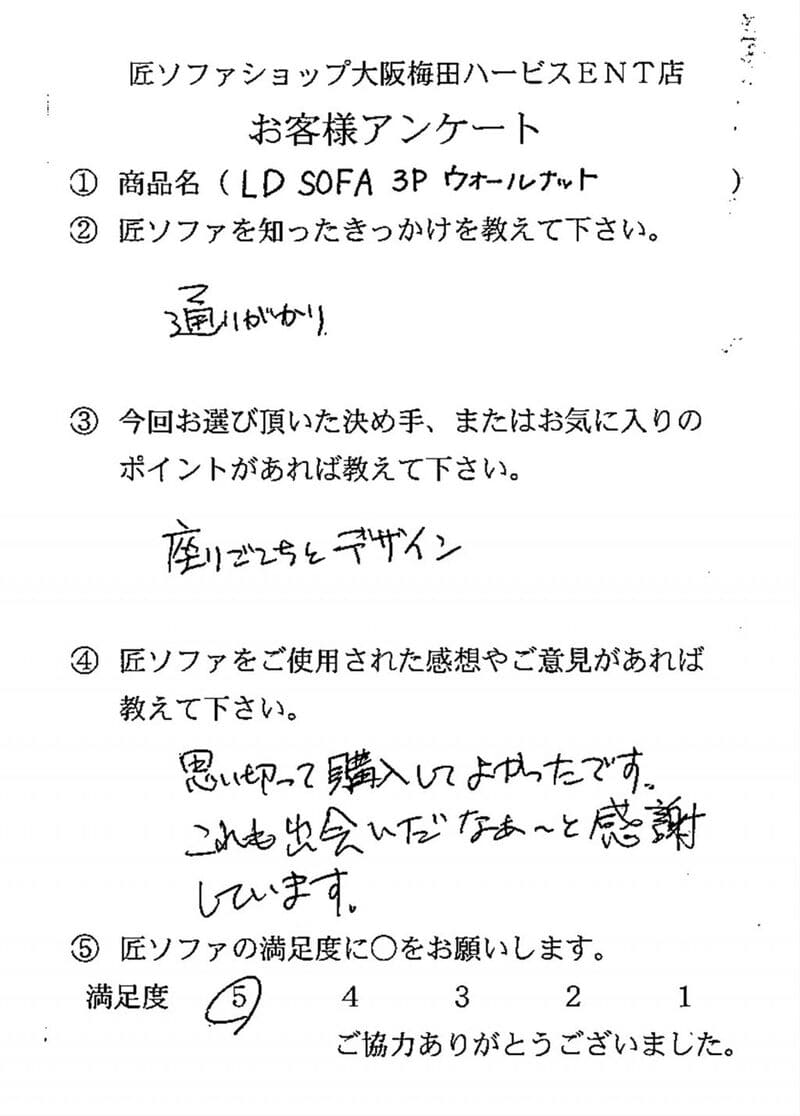 匠ソファショップ大阪梅田ハービスＥＮＴ店
お客様アンケート
① 商品名（ LD SOFA 3P ウォールナット ）
② 匠ソファを知ったきっかけを教えて下さい。
通りがかり
③ 今回お選び頂いた決め手、またはお気に入りの
ポイントがあれば教えて下さい。
座りごこちとデザイン
④ 匠ソファをご使用された感想やご意見があれば
教えて下さい。
思い切って購入してよかったです。
これも出会いだなぁ〜と感謝
しています。
⑤ 匠ソファの満足度に〇をお願いします。
満足度 5 4 3 2 1
ご協力ありがとうございました。